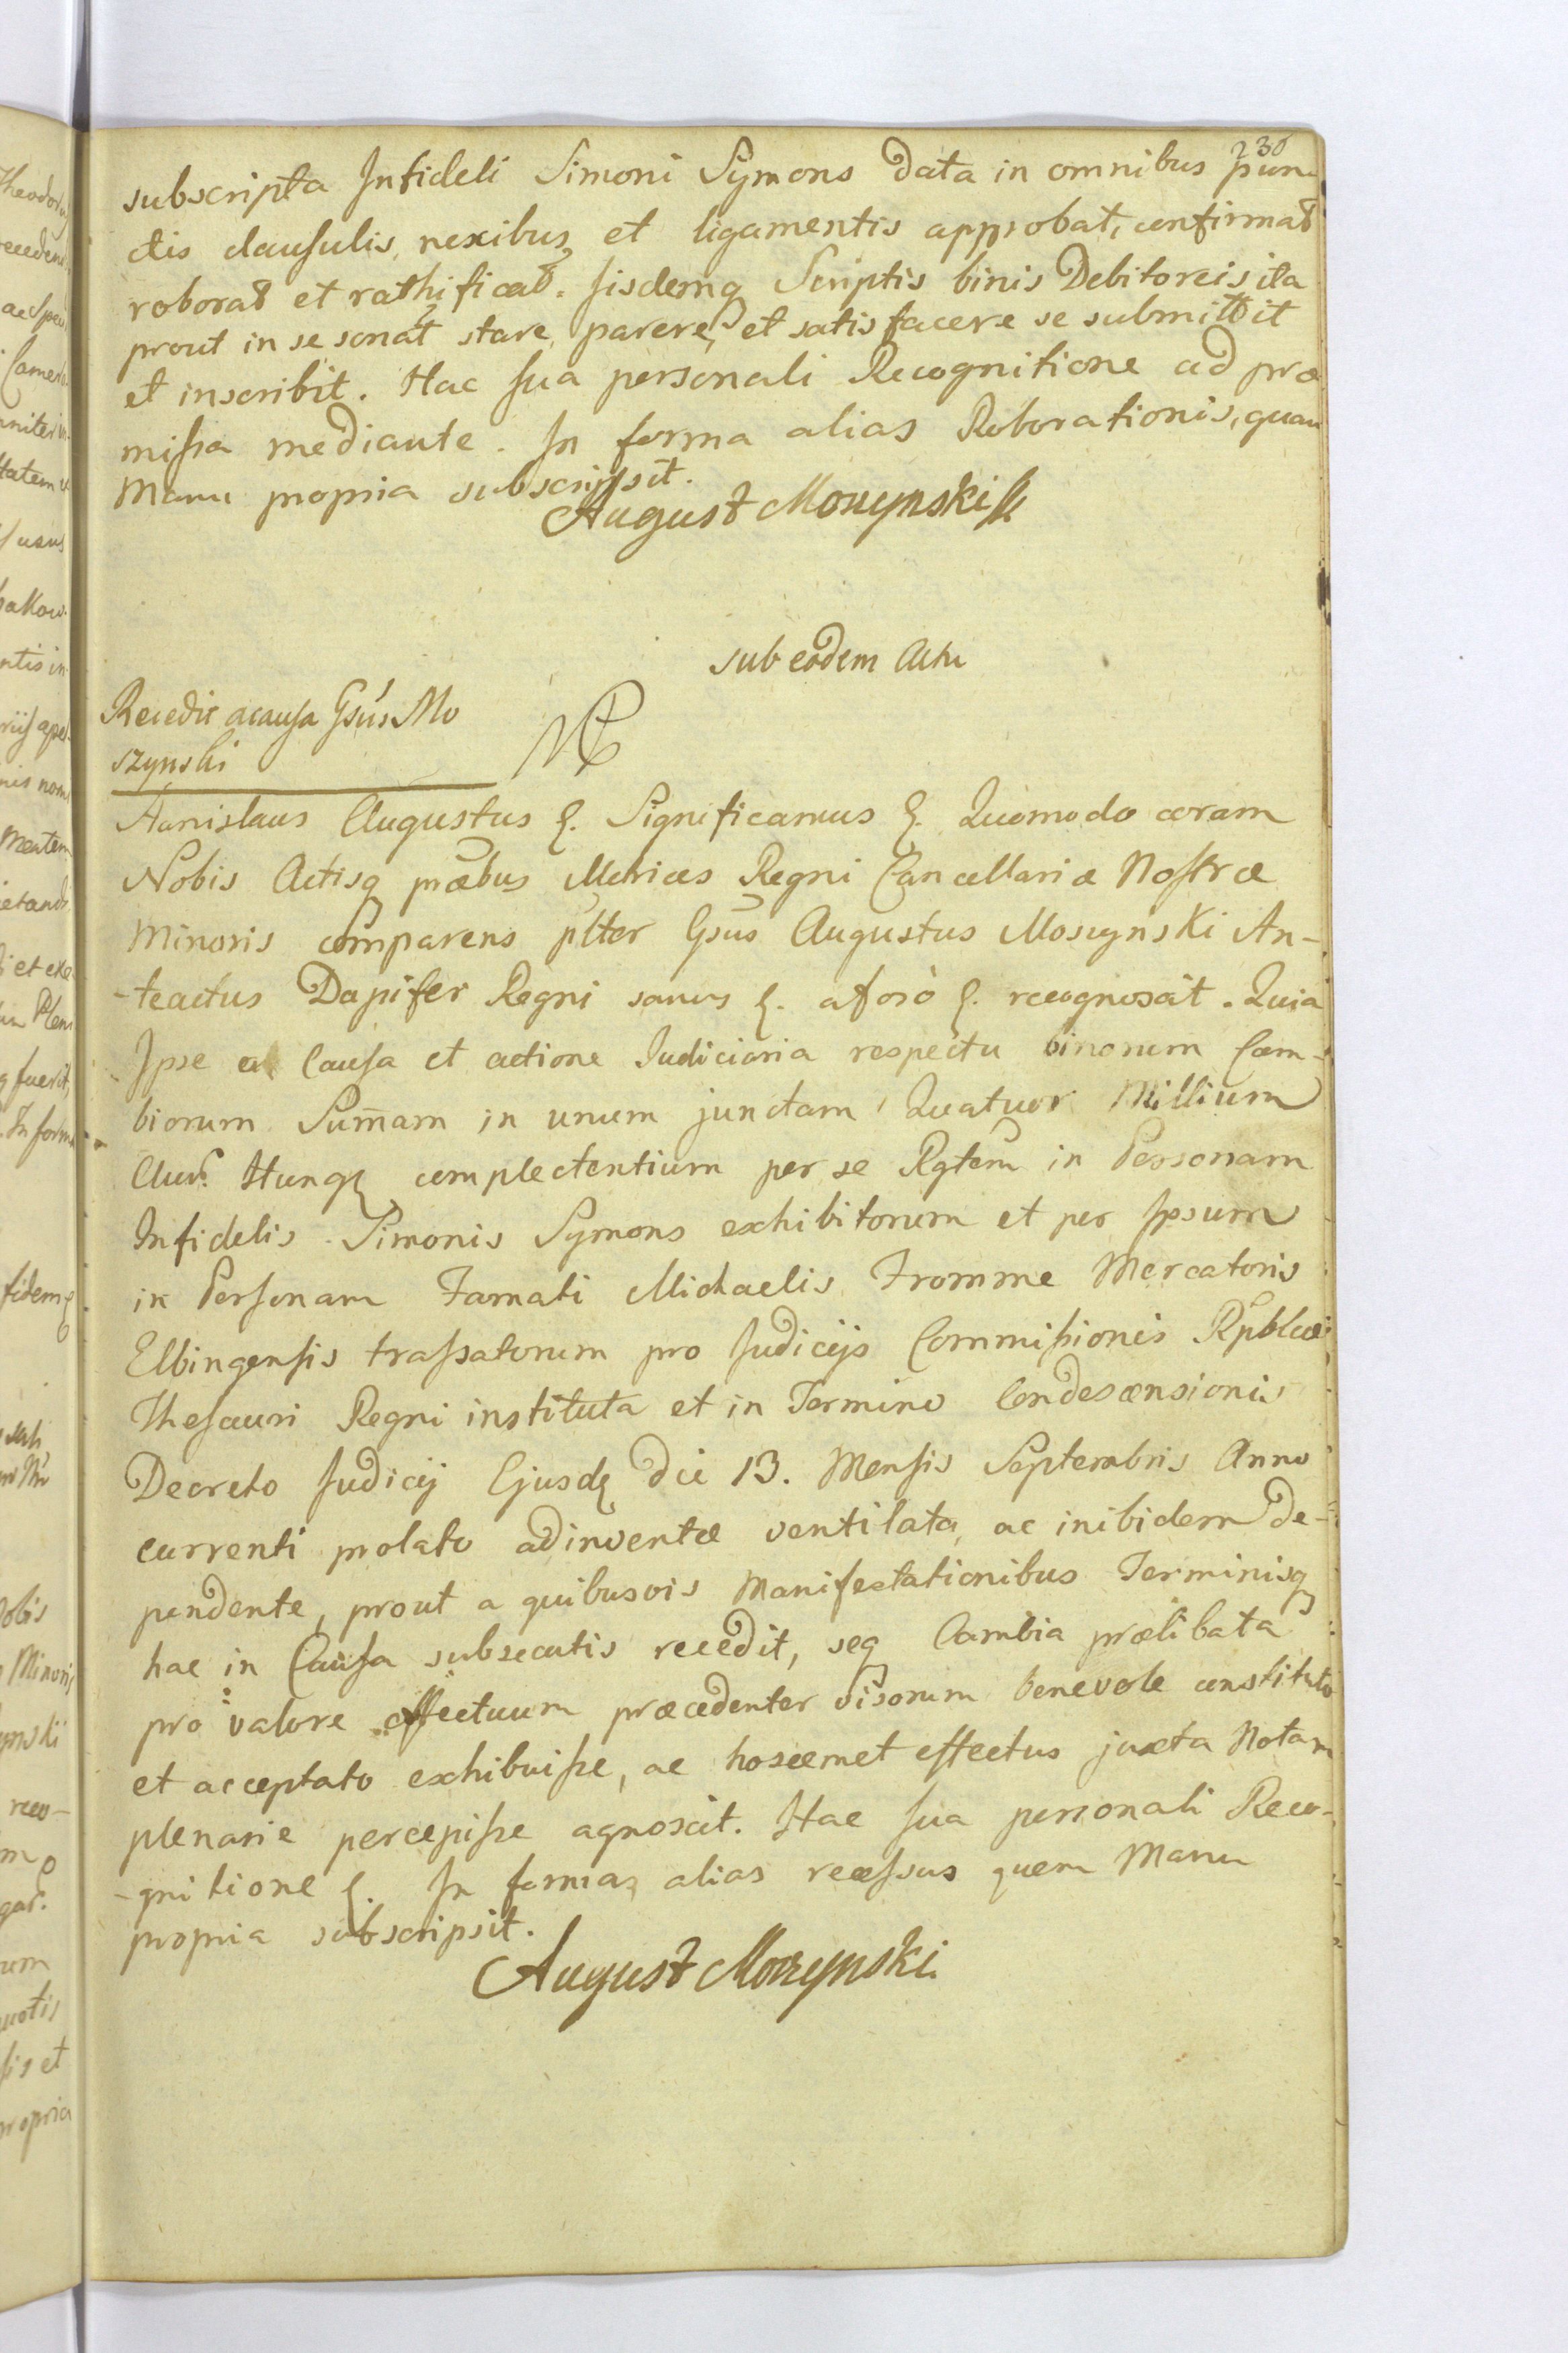 230
subscripta Infideli Simoni Symons data in omnibus pun-
ctis clausulis, nexibus et ligamentis approbat, confirmat
roborat et rathificat. Iisdemq Scriptis binis Debitoreis ita
prout in se sonat stare, parere, et satisfacere se submittit
et inscribit. Hac sua personali Recognitione ad præ
missa mediante. In forma alias Roborationis, quam
Manu propria subscripsit.
August Moszynski
sub eodem Actu
Recedit a causa Gsus Mo
szynski
Stanislaus Augustus &. Significamus &. Quomodo coram
Nobis Actisq præbus Metrices Regni Cancellariæ Nostræ
Minoris comparens plter Gsus Augustus Moszynski An-
-teactus Dapifer Regni sanus &. af oro &. recognoscit. Quia
Ipse a Causa et actione Iudiciaria respectu binorum Cam-
biorum Summam in unum junctam Quatuor Millium
Aur. Hung complectentium per se Rgtem in Personam
Infidelis Simonis Symons exhibitorum et per Ipsum
in Personam Famati Michaelis Fromme Mercatoris
Elbingensis trassatorum pro Iudicijs Commissionis Rpblcæ
Thesauri Regni instituta et in Termino Condescensionis
Decreto Iudicij Ejusd die 13. Mensis Septembris Anno
currenti prolato adinventæ ventilata, ac inibidem de-
pendente, prout a quibusvis Manifestationibus Terminisq
hac in Causa subsecutis recedit, seq Cambia prælibata
pro valore effectuum præcedenter visorum benevole constituto
et acceptato exhibuisse, ac hoscemet effectus juxta Notam
plenarie percepisse agnoscit. Hac sua personali Reco-
-gnitione &. In forma alias recessus quem Manu
propria subscripsit.
August Moszynski